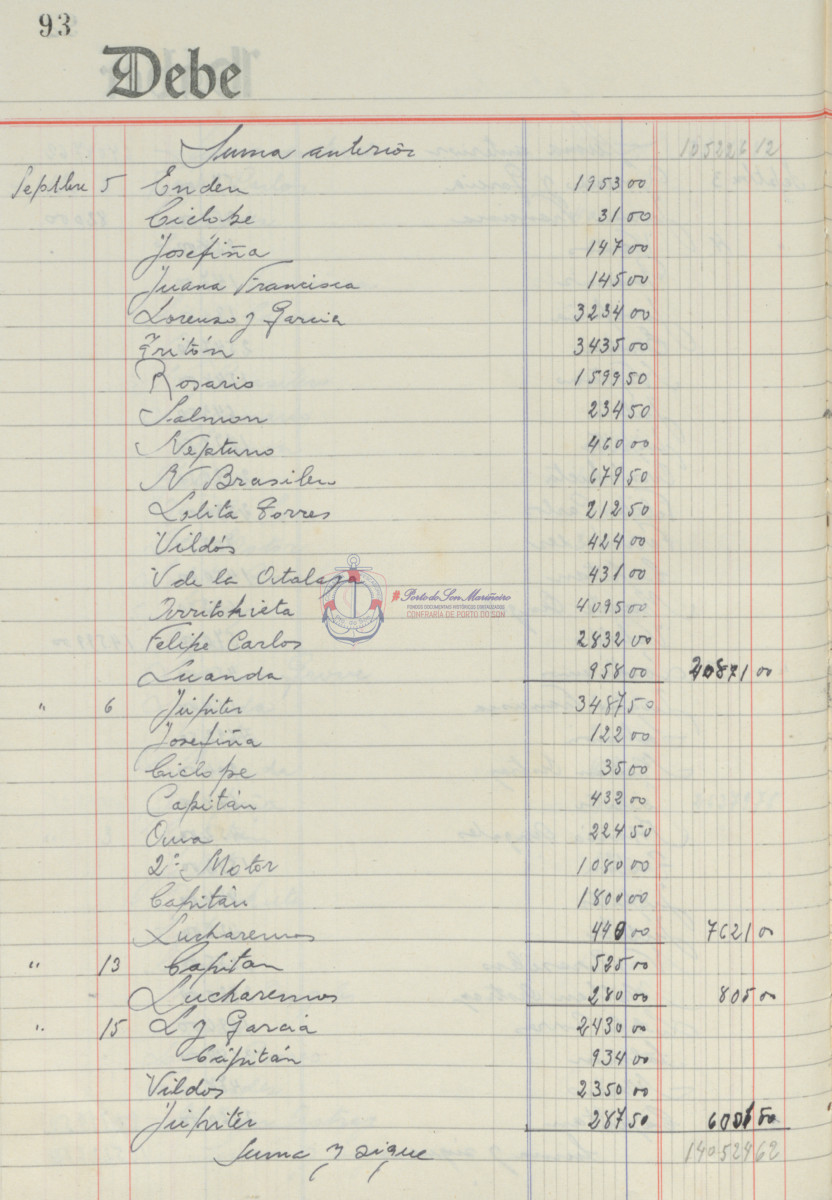 93
Debe
Suma anterior 105226 12
Septbre 5 Enden 1953 00
Ciclope 31 00
Josefiña 147 00
Juana Francisca 145 00
Lorenzo y Garcia 3234 00
Tritón 3435 00
Rosario 1599 50
Salmon 234 50
Neptuno 460 00
N Brasileu 679 50
Lolita Torres 212 50
Vildós 424 00
V de la Atalaya 431 00
4095 00
Felipe Carlos 2832 00
Luanda 958 00 20871 00
" 6 Jupiter 3487 50
Josefiña 122 00
Ciclope 35 00
Capitán 432 00
224 50
2º Motor 1080 00
Capitán 1800 00
Lucharemos 440 00 7621 00
" 13 Capitan 525 00
Lucharemos 280 00 805 00
" 15 L y Garcia 2430 00
Capitán 934 00
Vildós 2350 00
Jupiter 287 50 6001 50
Suma y sigue 140524 62
#Porto do Son Mariñeiro
FONDOS DOCUMENTAIS HISTÓRICOS DIXITALIZADOS
CONFRARÍA DE PORTO DO SON